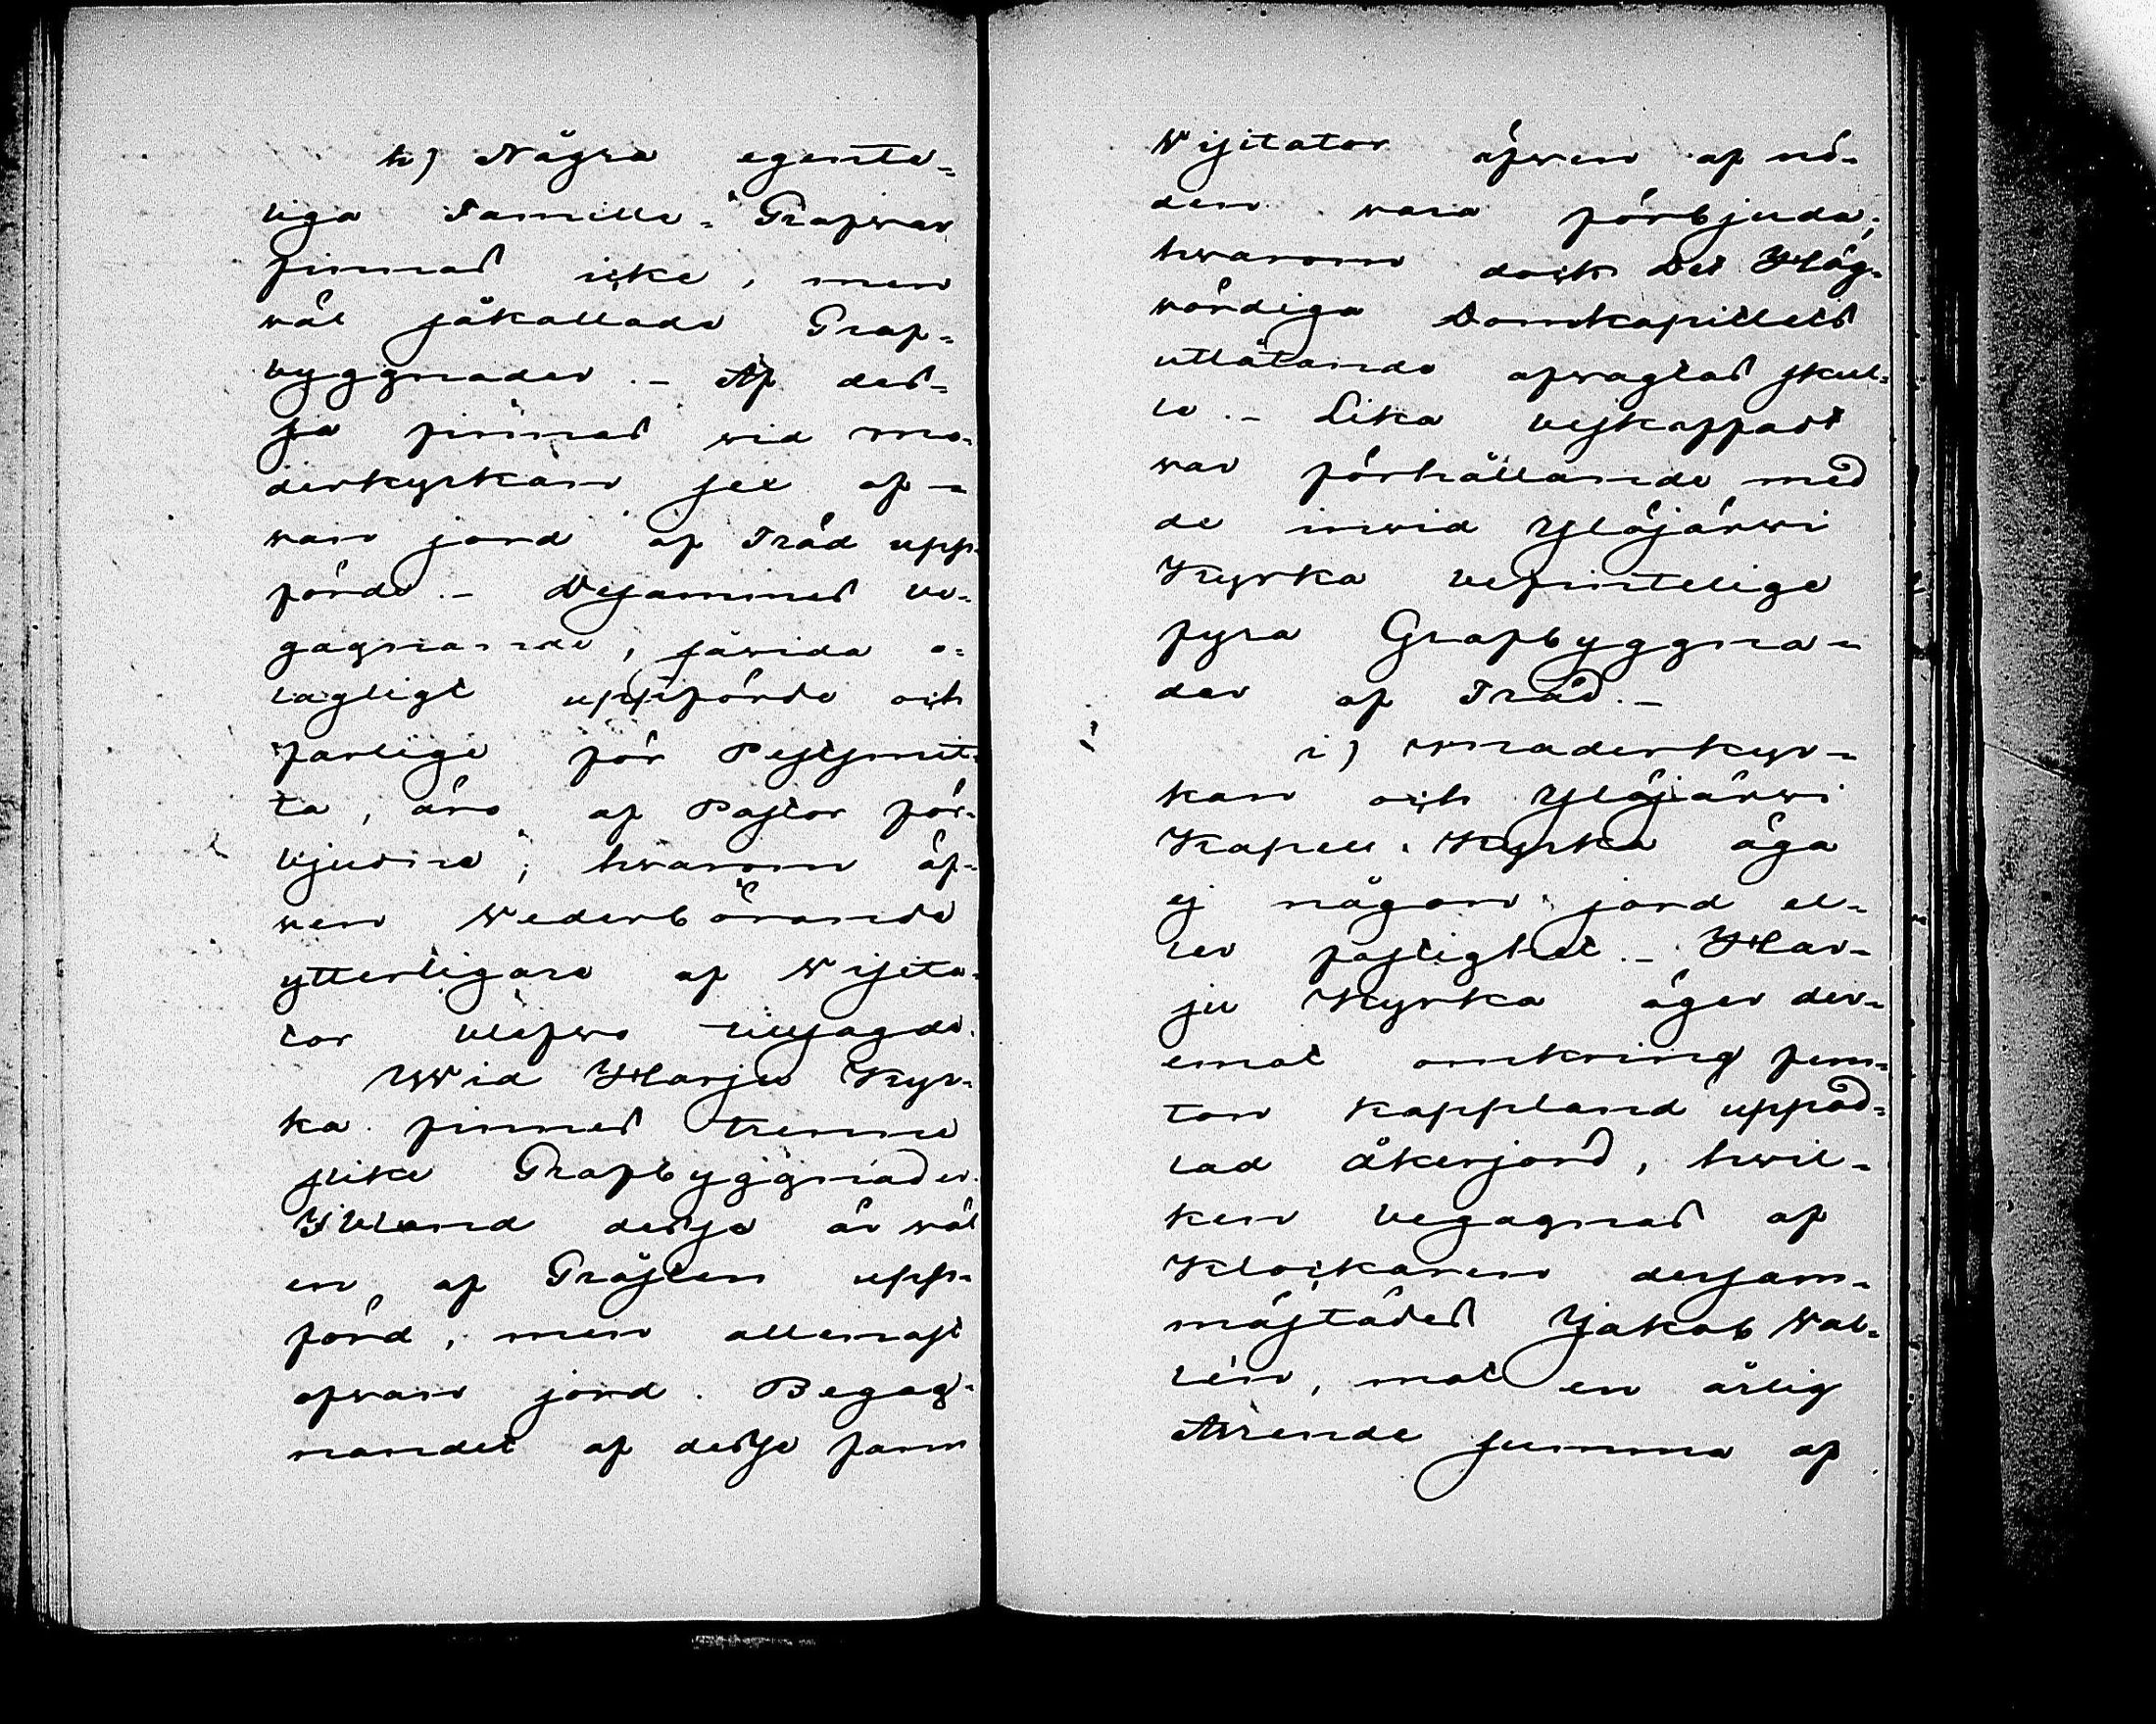 h) Några egente-
liga Famille-Grafwar
finnas icke, men
wäl såkallade Graf-
byggnader. - Af des-
sa finnas wid mo-
derkyrkan sex of-
wan jord af Träd upp-
förde. - Desammes be-
gagnande, såwida o-
lagligt uppförde och
farlige för Pestsmit-
ta, äro af Pastor för-
bjudne; hwarom äf-
wen Wederbörande
ytterligare af Wisita-
tor blefwo tillsagde.
Wid Harju Kyr-
ka finnes trenne
slike Grafbyggnader.
Ibland desse är wäl
en af Gråsten upp-
förd, men allenast
ofwan jord. Begag-
nandet af desse fann
Wisitator äfwen af nö-
den wara förbjuda;
hwarom dock Det Hög-
wördiga Domkapitlets
utlåtande afwagtas skul-
le. - Lika beskaffadt
war förhållande med
de inwid Ylöjärwi
Kyrka befintelige
fyra Grafbyggna-
der af Träd. -
i) Moderkyr-
kan och Ylöjärwi
Kapell-Kyrka äga
ej någon jord el-
ler fastighet. - Har-
ju Kyrka äger der-
emot omkring fem-
ton kappland uppod-
lad åkerjord, hwil-
ken begagnas af
Klockaren dersam-
mastädes Jakob Wal-
lén, mot en årlig
Arende summa af